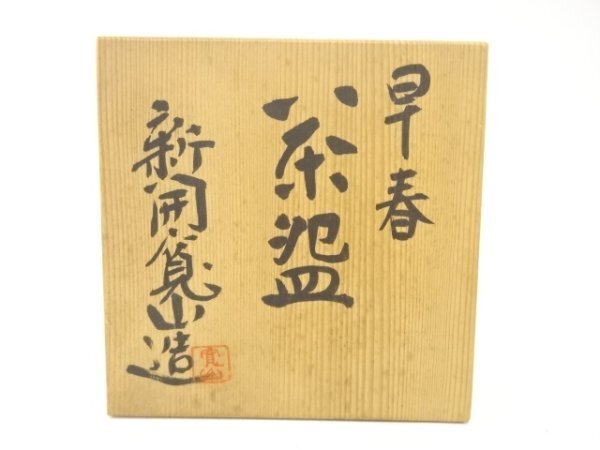 早春
茶盌
新開寛山造
寛山